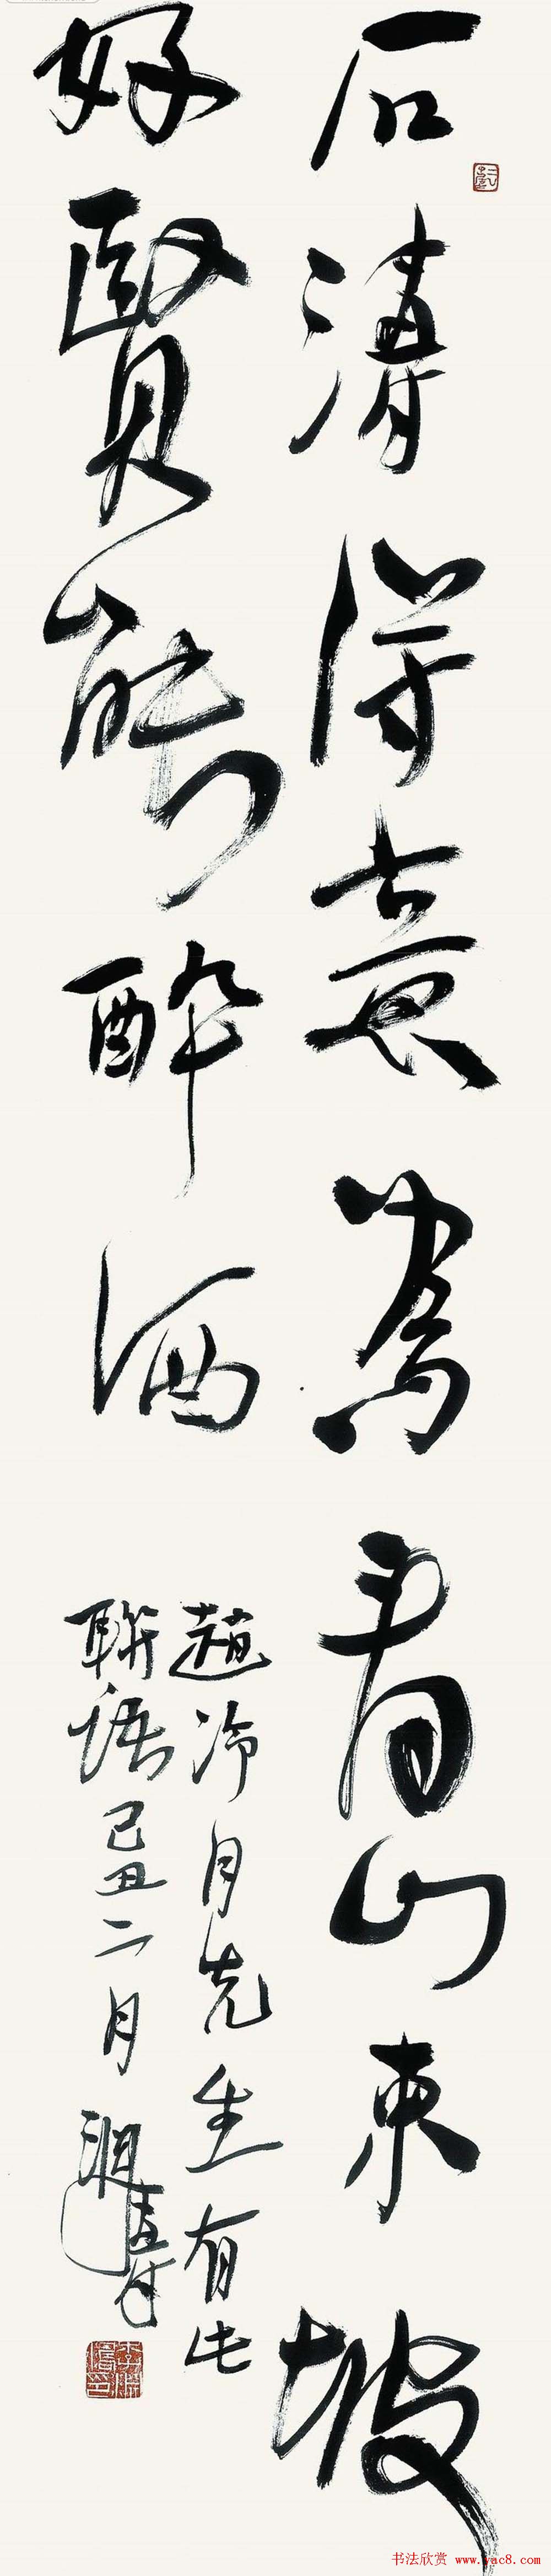 石濤得意看山東坡
好賢能醉酒
趙冷月先生有此
聯語己丑二月
书法欣赏 www.yac8.com